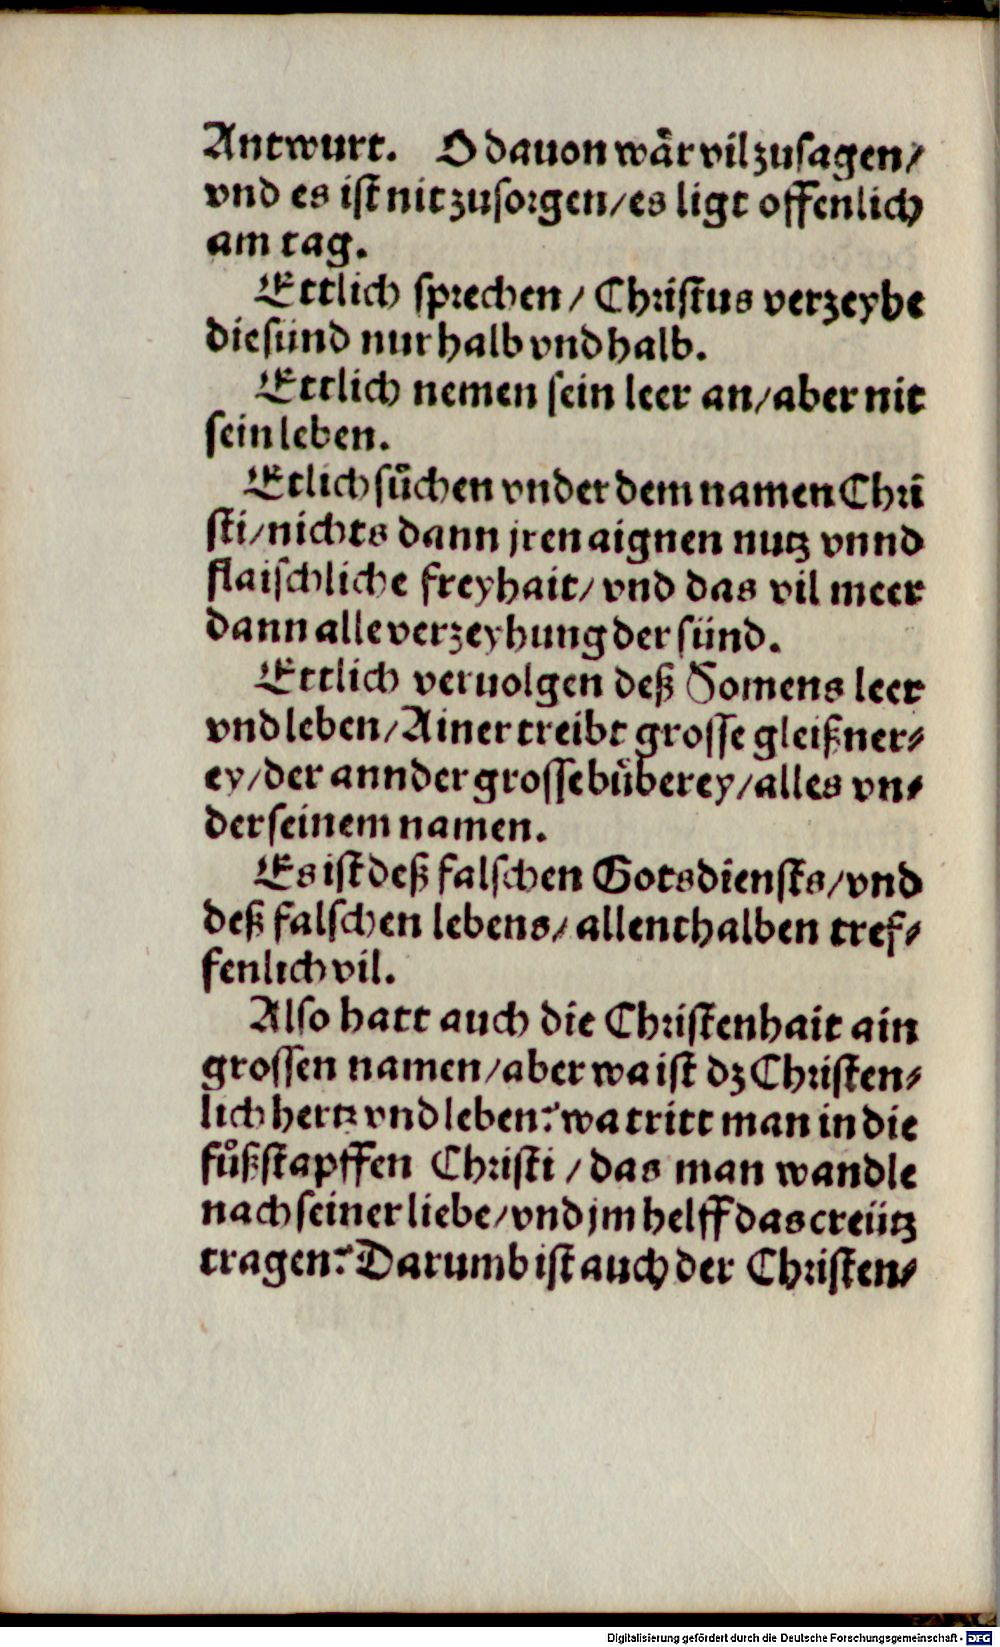 Antwurt. O dauon wår vil zusagen/
vnd es ist nit zusorgen/es ligt offenlich
am tag.
Ettlich sprechen/ Christus verzeyhe
die sünd nur halb vnd halb.
Ettlich nemen sein leer an/aber nit
sein leben.
Etlich sůchen vnder dem namen Chri
sti/nichts dann jren aignen nutz vnnd
flaischliche freyhait/ vnd das vil meer
dann alle verzeyhung der sünd.
Ettlich veruolgen deß Somens leer
vnd leben/Ainer treibt grosse gleißner⸗
ey/der annder grosse bůberey/alles vn⸗
der seinem namen.
Es ist deß falschen Gotsdiensts/vnd
deß falschen lebens/ allenthalben tref⸗
fenlich vil.
Also hatt auch die Christenhait ain
grossen namen/aber wa ist dz Christen⸗
lich hertz vnd leben? wa tritt man in die
fůßstapffen Christi/das man wandle
nach seiner liebe/vnd jm helff das creütz
tragen? Darumb ist auch der Christen⸗
Digitalisierung gefördert durch die Deutsche Forschungsgemeinschaft - DFG